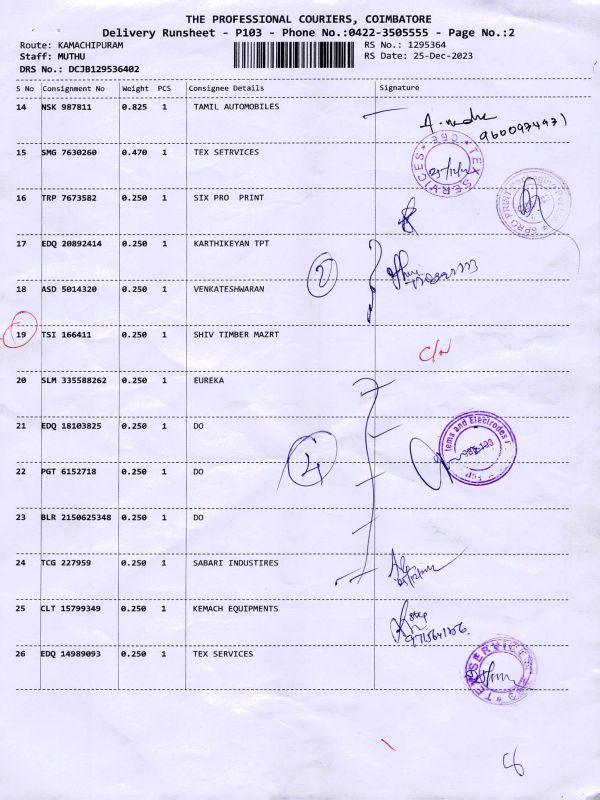 THE PROFESSIONAL COURIERS, COIMBATORE
Delivery Runsheet - P103 - Phone No.:0422-3505555 - Page No.:2
Route: KAMACHIPURAM RS No.: 1295364
Staff: MUTHU RS Date: 25-Dec-2023
DRS No.: DCJB129536402
S No Consignment No Weight PCS Consignee Details Signature
14 NSK 987811 0.825 1 TAMIL AUTOMOBILES
15 SMG 7630260 0.470 1 TEX SETRVICES
TEX SERVICES CBE
16 TRP 7673582 0.250 1 SIX PRO PRINT
17 EDQ 20892414 0.250 1 KARTHIKEYAN TPT
2
18 ASD 5014320 0.250 1 VENKATESHWARAN
19 TSI 166411 0.250 1 SHIV TIMBER MAZRT
C/N
20 SLM 335588262 0.250 1 EUREKA
21 EDQ 18103825 0.250 1 DO
tems and Electrodes
4
22 PGT 6152718 0.250 1 DO
23 BLR 2150625348 0.250 1 DO
24 TCG 227959 0.250 1 SABARI INDUSTIRES
25 CLT 15799349 0.250 1 KEMACH EQUIPMENTS
26 EDQ 14989093 0.250 1 TEX SERVICES
TEX SERVICES